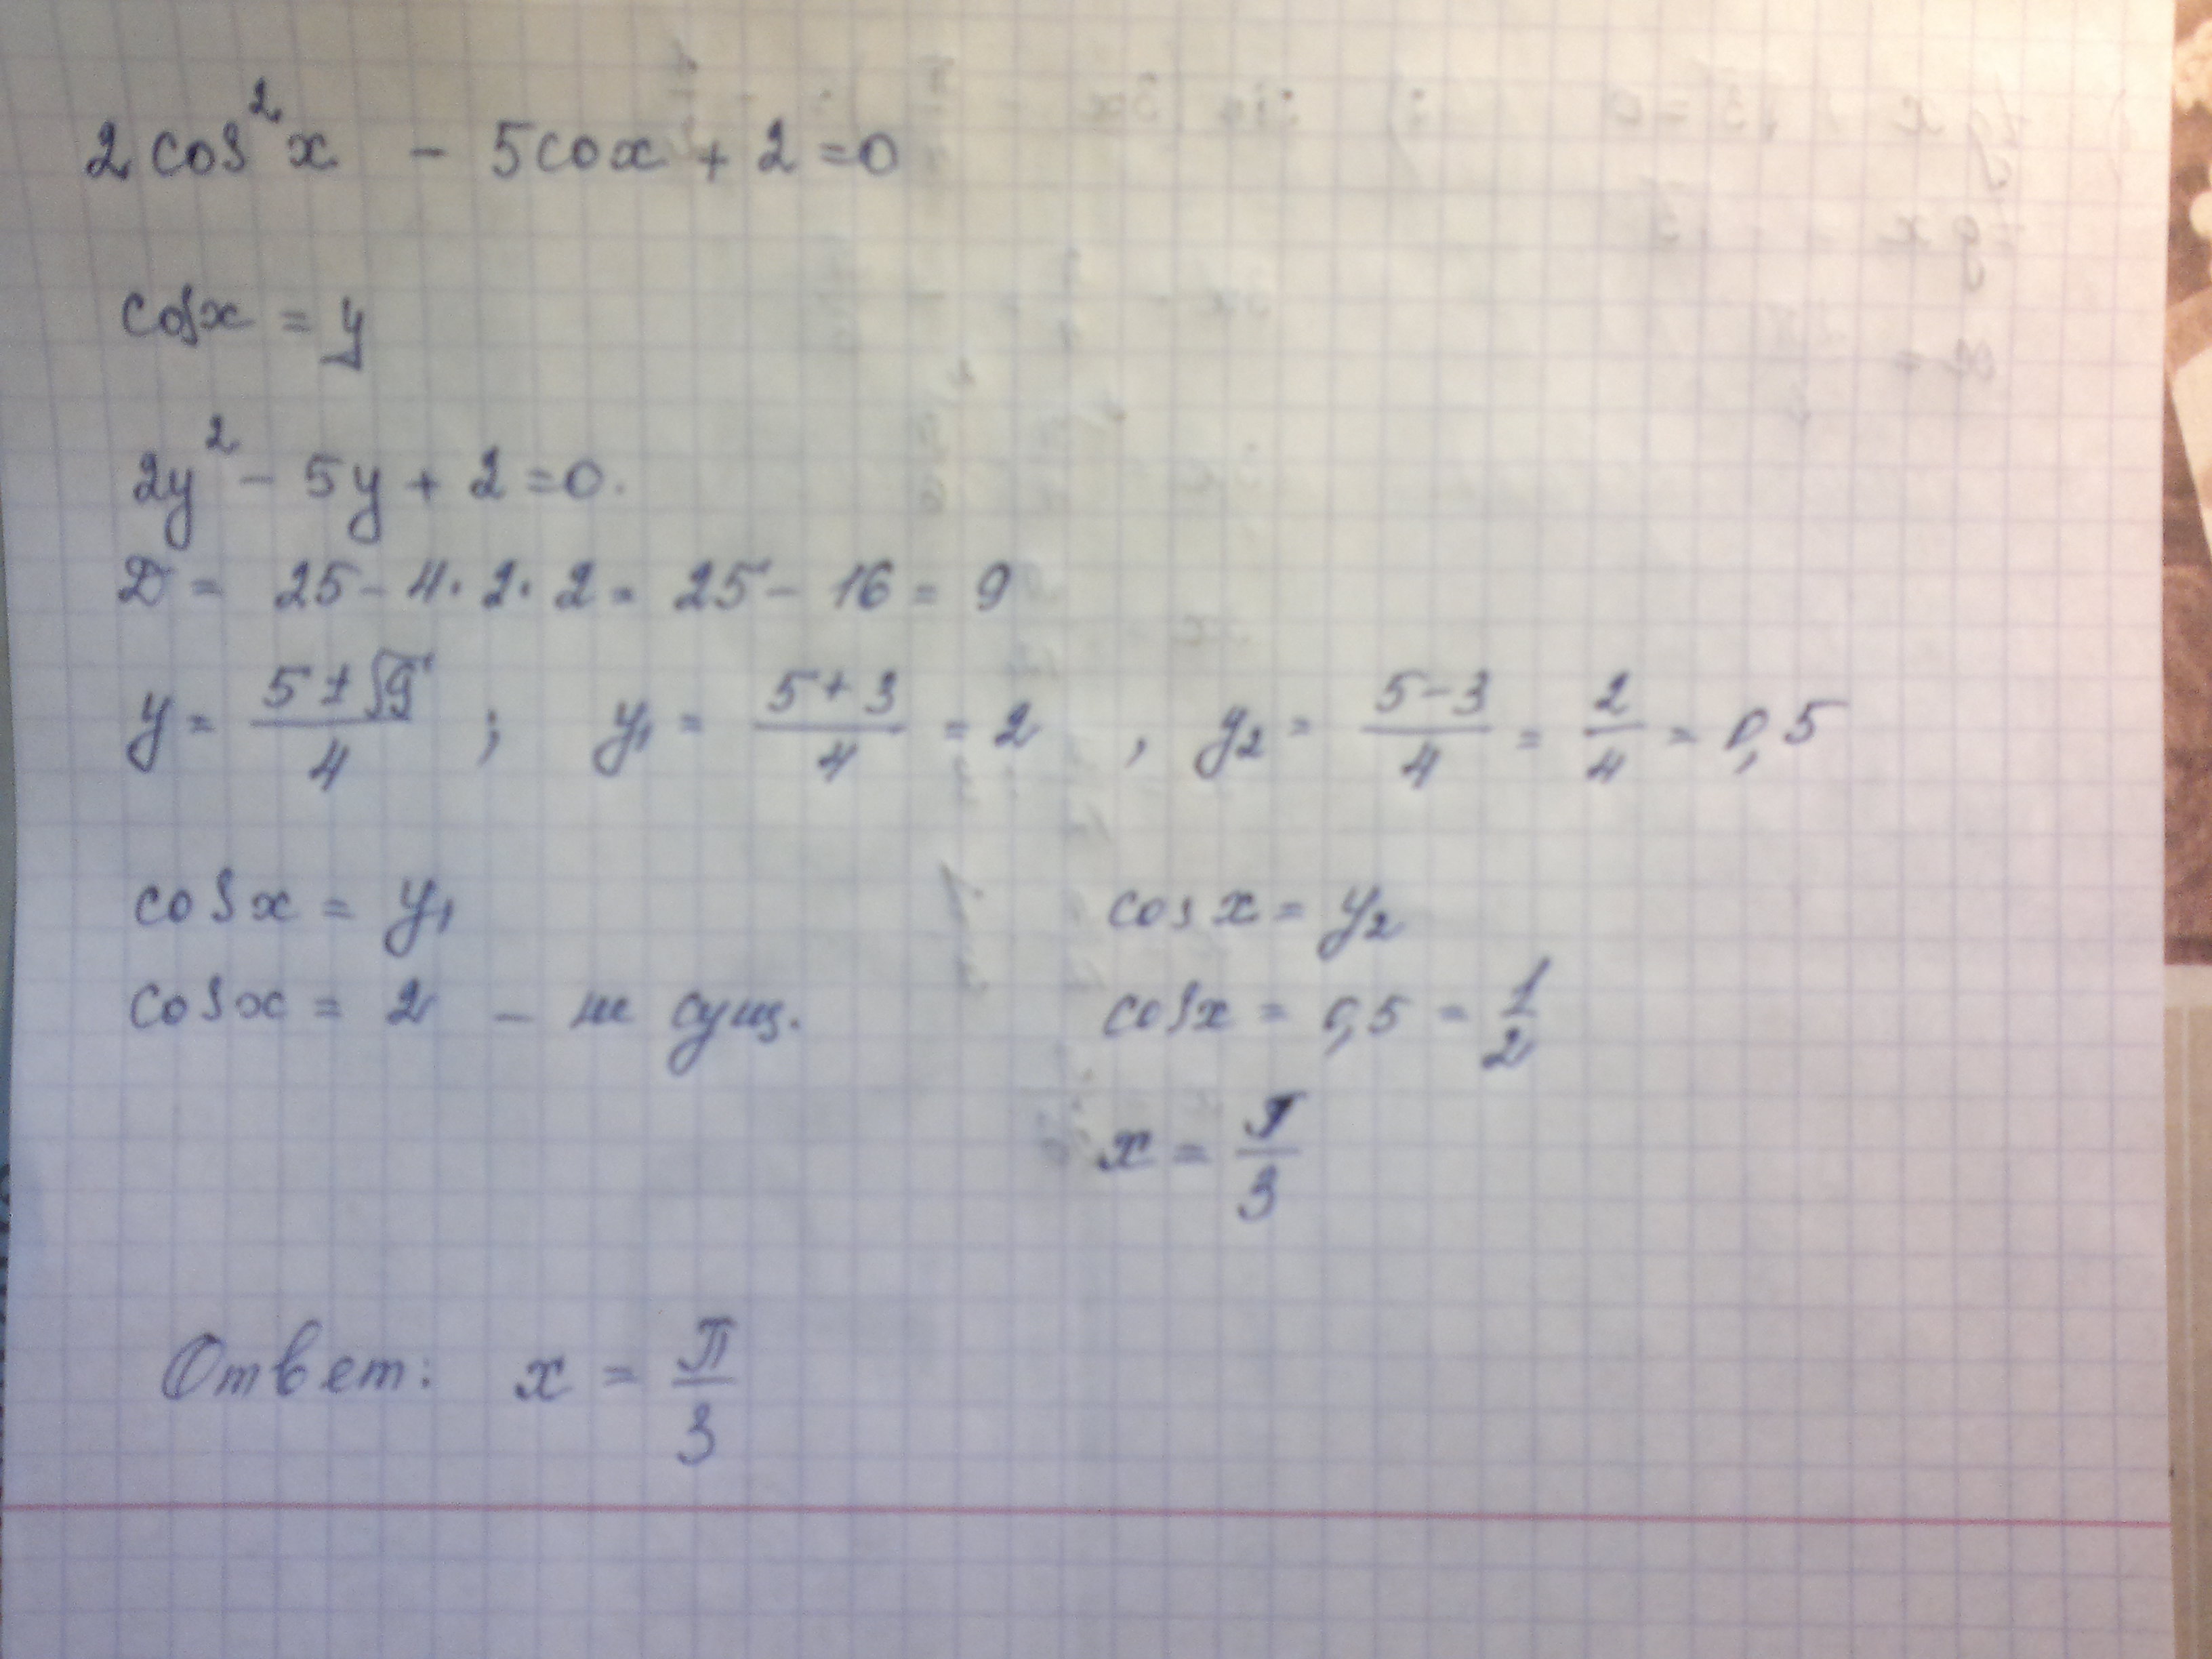 2cos²x - 5cox + 2 = 0
cosx = y
2y² - 5y + 2 = 0.
D = 25 - 4·2·2 = 25 - 16 = 9
y = (5±√9)/4 ; y₁ = (5+3)/4 = 2 , y₂ = (5-3)/4 = 2/4 = 0,5
cosx = y₁ cosx = y₂
cosx = 2 - не сущ. cosx = 0,5 = 1/2
x = π/3
Ответ: x = π/3